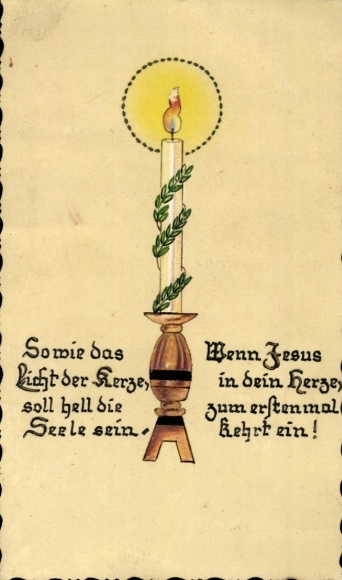 Sowie das
Licht der Kerze,
soll hell die
Seele sein.
Wenn Jesus
in dein Herze,
zum erstenmal
kehrt ein!